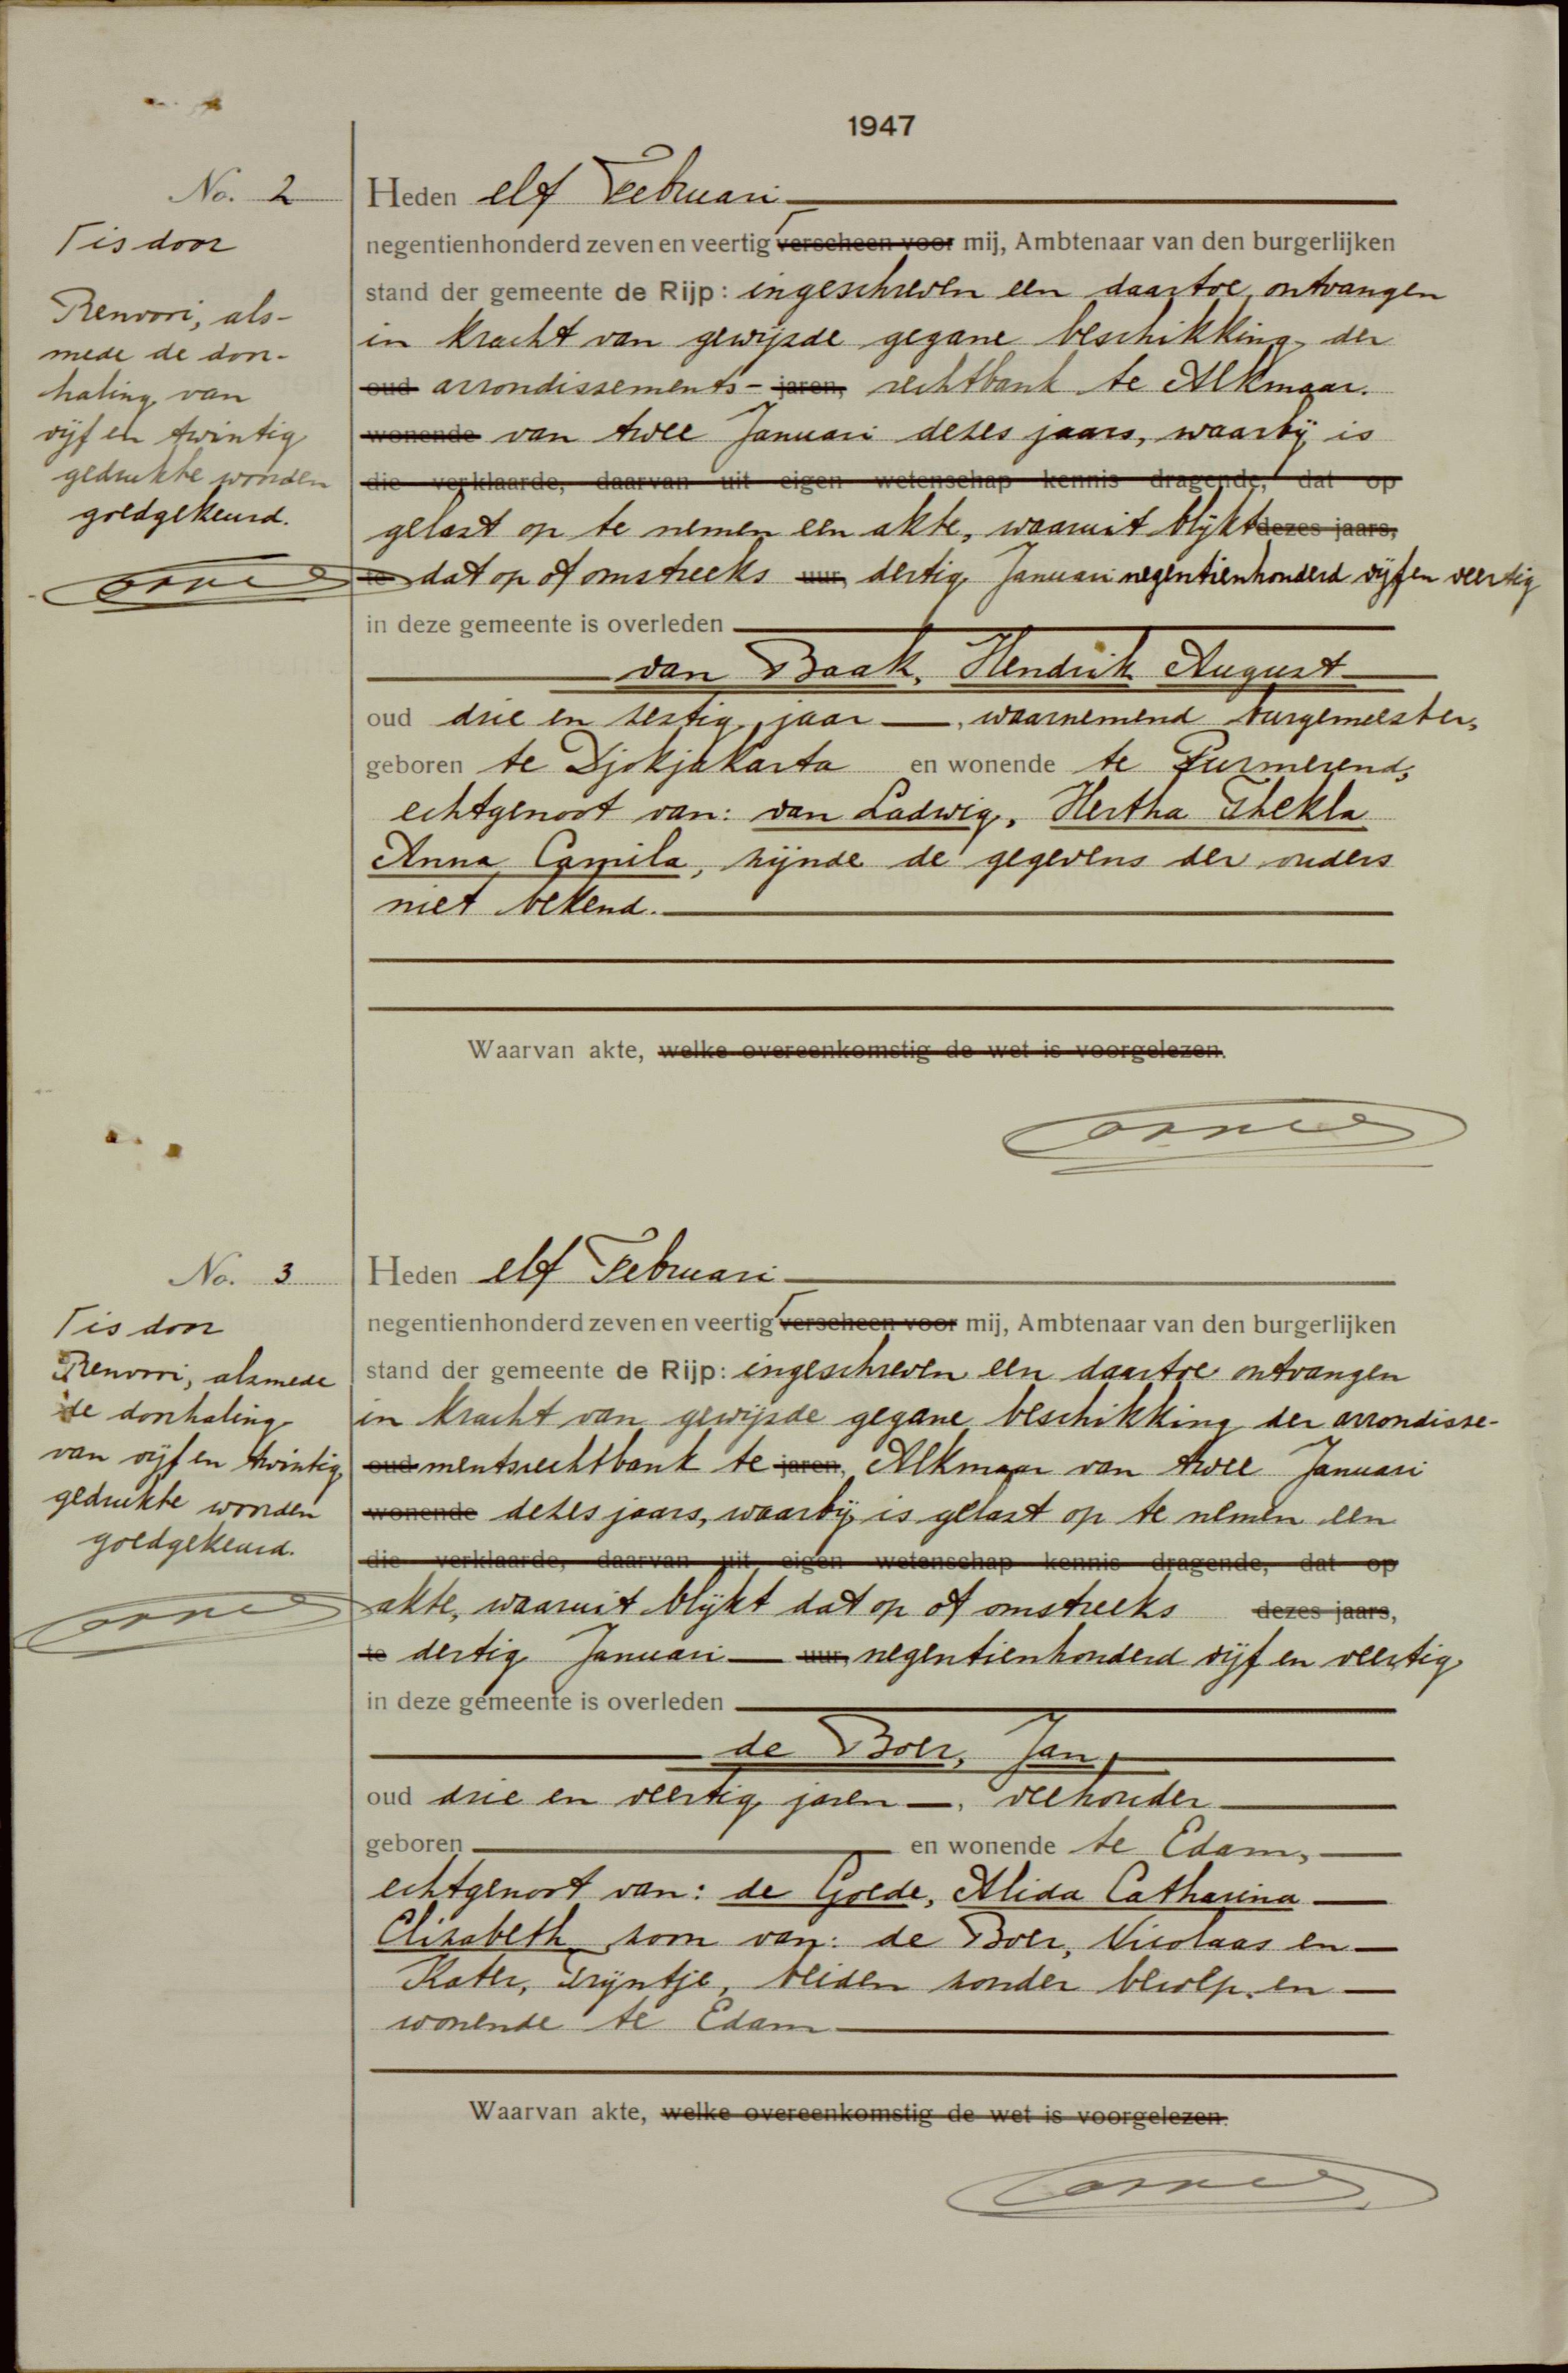 1947
No. 2
Heden elf Februari
⌈is door
negentienhonderd zeven en veertig ⌈verscheen voor mij, Ambtenaar van den burgerlijken
stand der gemeente de Rijp: ingeschreven een daartoe ontvangen
Renvooi, als-
in kracht van gewijsde gegane beschikking der
mede de door-
oud arrondissements- jaren, rechtbank te Alkmaar.
haling van
wonende van twee Januari dezes jaars, waarbij is
vijf en twintig
die verklaarde, daarvan uit eigen wetenschap kennis dragende, dat op
gedrukte woorden
gelast op te nemen een akte, waaruit blijkt dezes jaars,
goedgekeurd.
te dat op of omstreeks uur, dertig Januari negentienhonderd vijf en veertig
in deze gemeente is overleden
van Baak, Hendrik August
oud drie en zestig jaar, waarnemend burgemeester,
geboren te Djokjakarta en wonende te Purmerend,
echtgenoot van: van Ladwig, Hertha Thekla
Anna Camila, zijnde de gegevens der ouders
niet bekend.
Waarvan akte, welke overeenkomstig de wet is voorgelezen.
No. 3
Heden elf Februari
⌈is door
negentienhonderd zeven en veertig ⌈verscheen voor mij, Ambtenaar van den burgerlijken
Renvooi, alsmede
stand der gemeente de Rijp: ingeschreven een daartoe ontvangen
de doorhaling
in kracht van gewijsde gegane beschikking der arrondisse-
van vijf en twintig
oud mentsrechtbank te jaren, Alkmaar van twee Januari
gedrukte woorden
wonende dezes jaars, waarbij is gelast op te nemen een
goedgekeurd.
die verklaarde, daarvan uit eigen wetenschap kennis dragende, dat op
akte, waaruit blijkt dat op of omstreeks dezes jaars,
te dertig Januari uur, negentienhonderd vijf en veertig
in deze gemeente is overleden
de Boer, Jan,
oud drie en veertig jaren, veehouder
geboren en wonende te Edam,
echtgenoot van: de Goede, Alida Catharina
Elizabeth, zoon van: de Boer, Nicolaas en
Kater, Trijntje, beiden zonder beroep en
wonende te Edam
Waarvan akte, welke overeenkomstig de wet is voorgelezen.